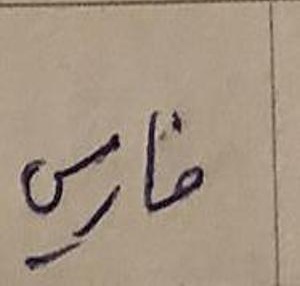 فاريس